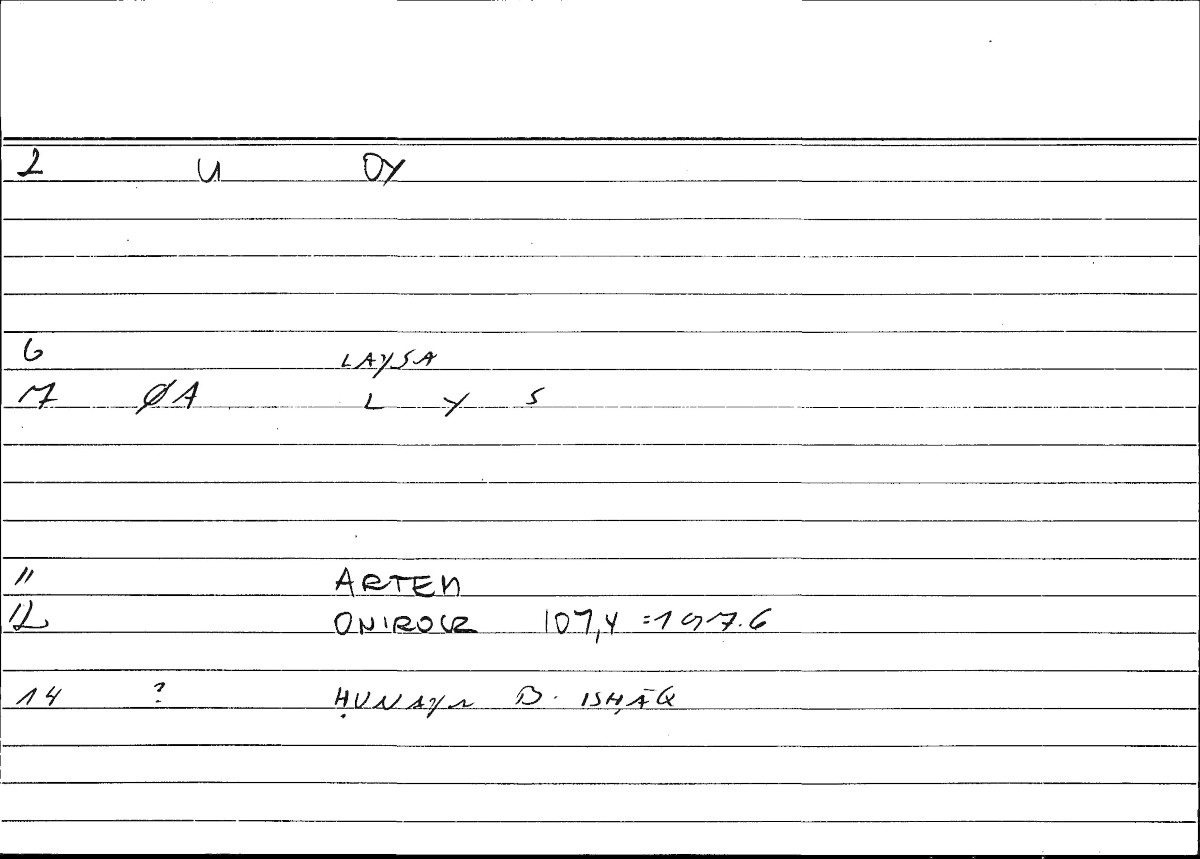 2 U OY
6 LAYSA
7 ØA L Y S
11 ARTEM
12 ONIROCR 107,4 = 197.6
14 ? ḤUNAYN B. ISḤĀQ